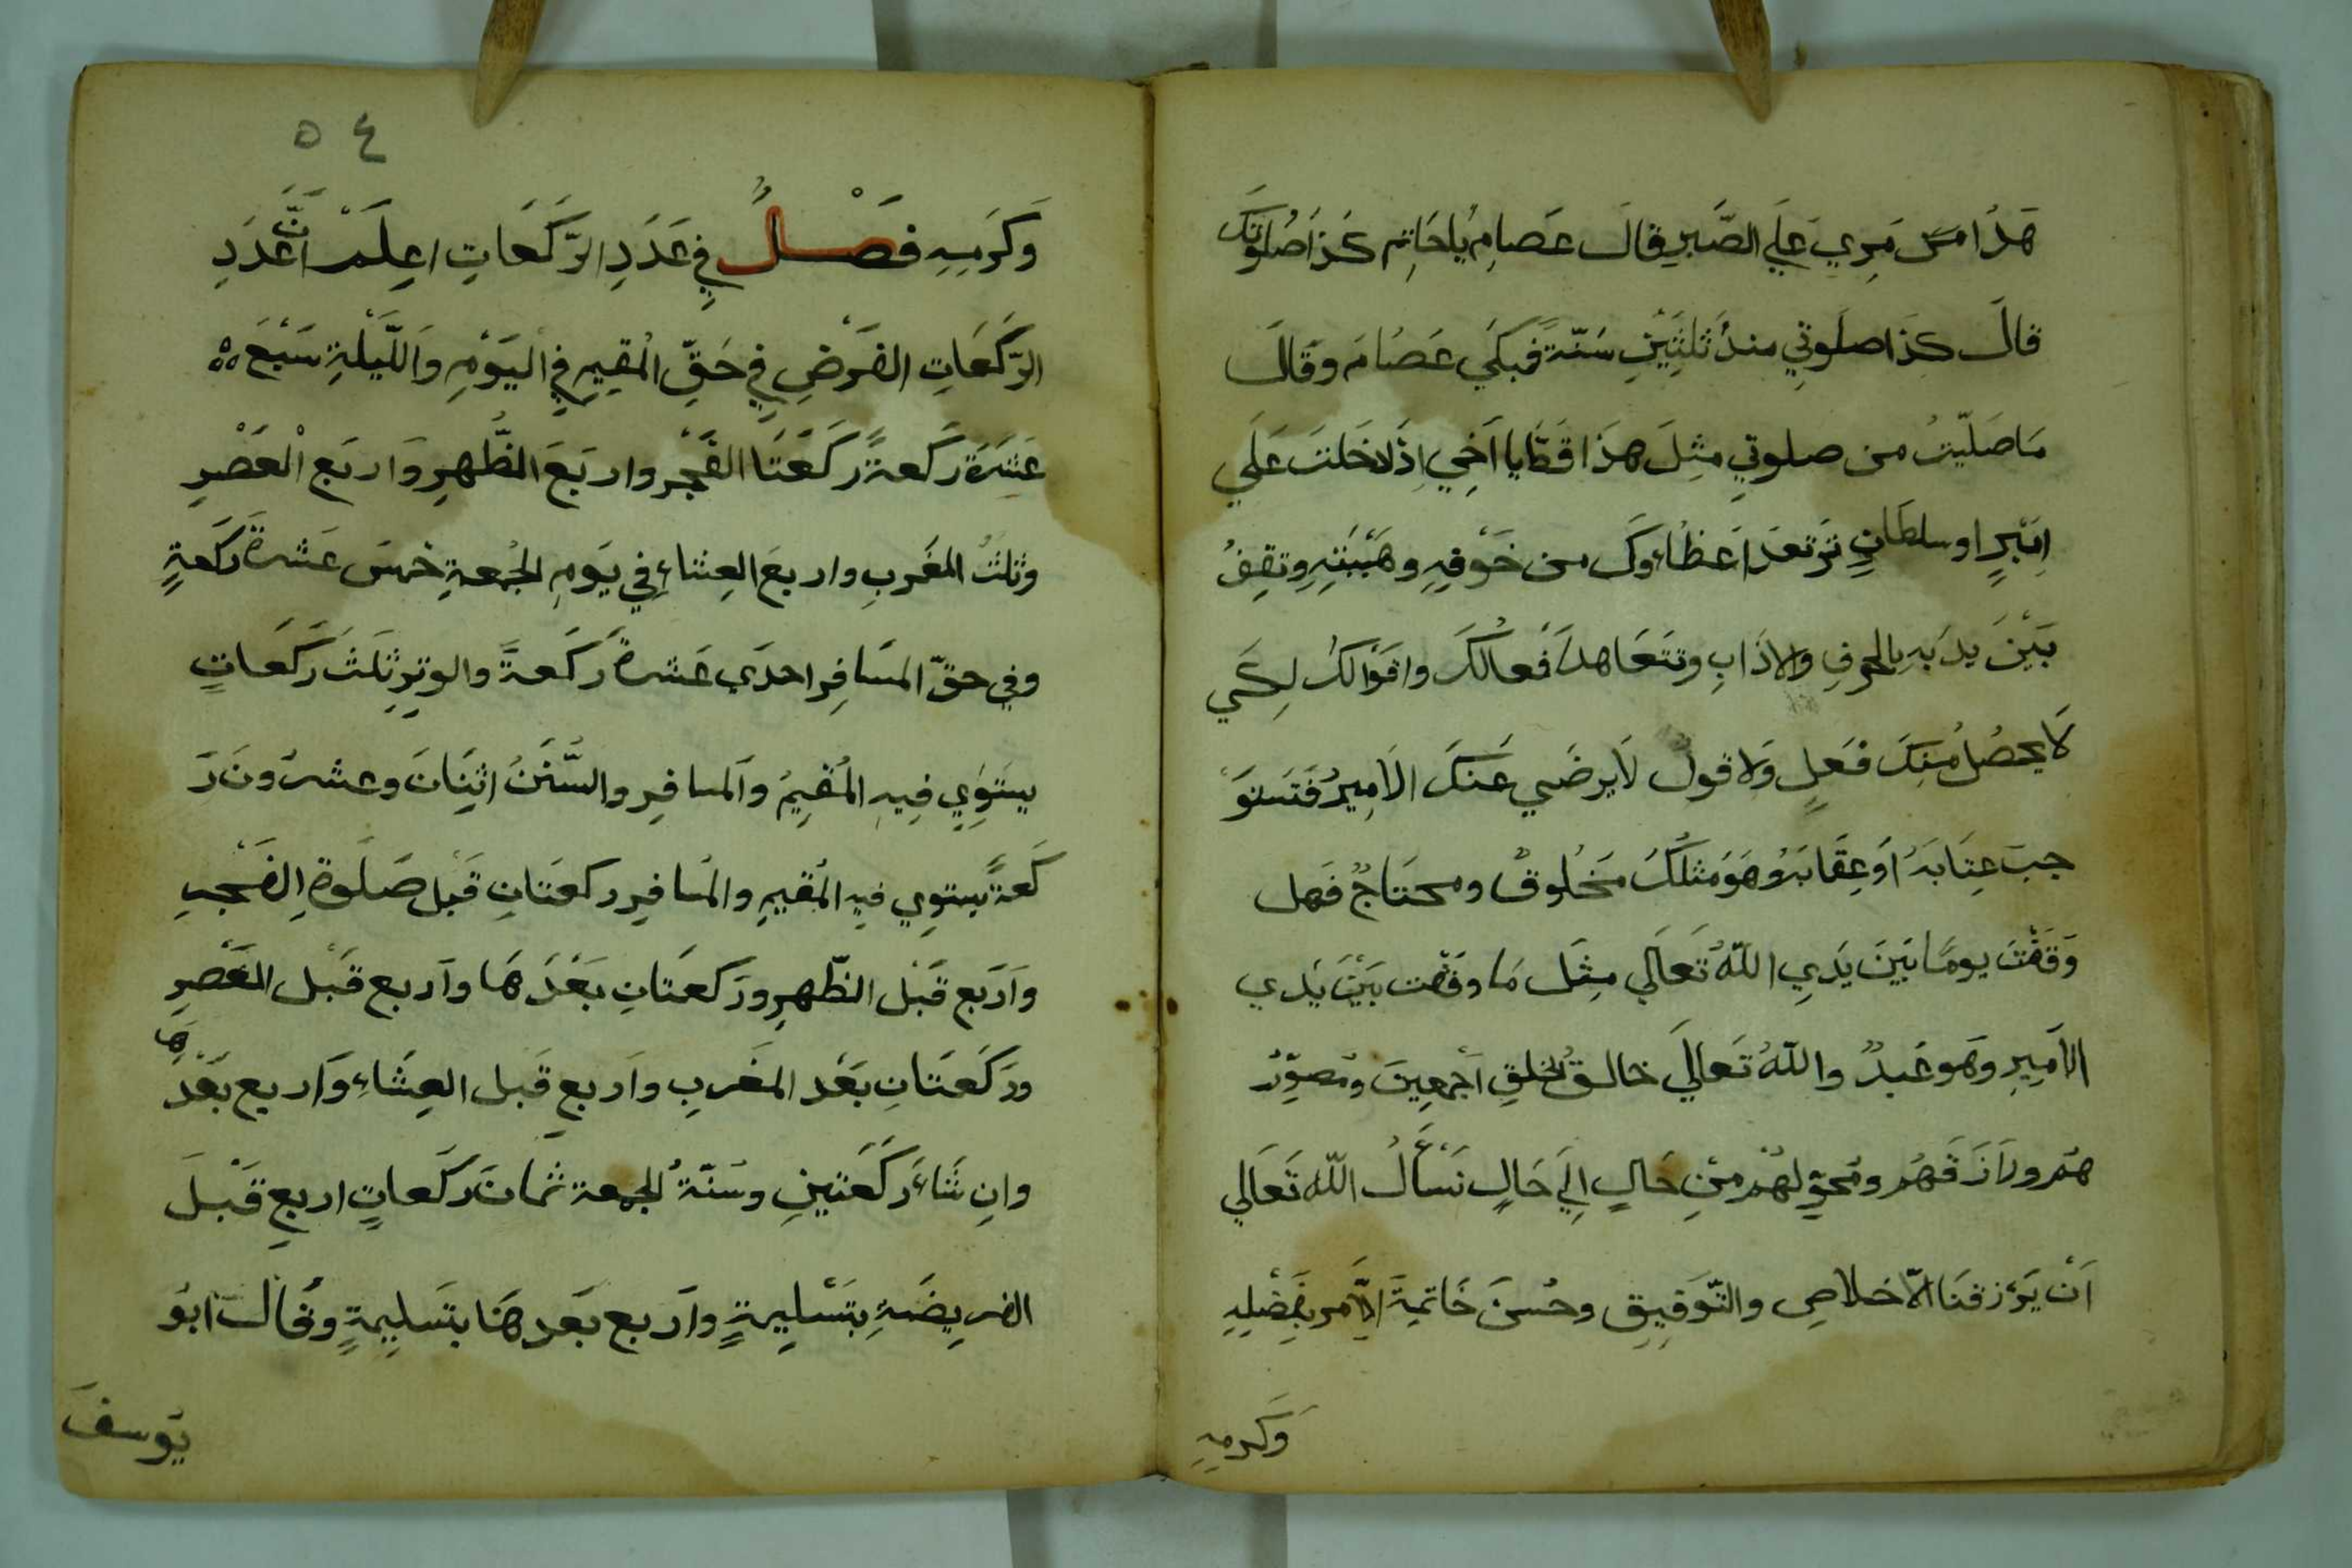 هَذَا مَسَّ مَرِي عَلَي الصَّبرِ قالَ عَصامِ يُا حَاتِم كَذَا صُلوتكَ
قالَ كذا صلَوتِي منذُ ثلثِيْنِ سَنّةً فبكَي عَصَامَ وقَالَ
مَا صَلّيتُ من صلوتيِ مثِلَ هذَا قَطُّ يا اَخِي اِذَا دخلتَ عَلَي
اِمَيْرٍ او سلطَانٍ تَرتعدَ اعَظاؤكَ من خَوْفِهِ وهَيْبَتِهِ وتقِفُ
بَيْنَ يدَيهِ بالحرفِ والادَابِ وتتَعَاهدَ اَفعالكَ واقوَالكَ لِكَي
لَا يحصُلُ مِنكَ فعَلٍ وَلا قولٌ لَا يرضَي عَنكَ الاَمِيرُ فتَستَوَ
جبَ عِتَابَهُ اوَ عِقَابَهُ وَهوَ مثلُكَ مَخلُوقٌ ومحتَاجٌ فَهل
وَقَفْتَ يومًا بَينَ يَدَيِ اللّهُ تَعَالَي مِثَل مَا وقفت بَيْنَ يَدي
الاَمِيرِ وهَو عَبدٌ واللّهُ تَعَالَي خالقُ الخلقِ اَجْمعِينَ ومُصوِّرُ
هُم ورَازقَهُم ومُحوِّلهُم مِنْ حَالٍ اِلَي حَالٍ نَسْأَلُ اللّه تَعَالي
اَنْ يَرْزقنَا الاّخلاصِ والتّوَفِيقِ وحُسنَ خَاتمِةَ الاَمرِ بفَضْلِهِ
وَكرمِهِ
٥٤
وَكرَمِهِ فصْلٌ فِي عَدَدِ الرَّكَعَاتِ اعِلَمْ انَّ عَدَدِ
الرّكعَاتِ الفَرْضِ فِي حَقِّ الْمقيمِ فِي اليَوْمِ وَاللَّيْلَةِ سَبْعَ
عَشَرَةَ ركَعةً ركَعَتَا الفَجْر واربَعَ الظُّهرِ وَاربَع العَصْرِ
وثلثُ المَغربِ واربعَ العِشَاءِ فِي يَومِ الجُمعةِ خمَس عَشرةَ ركَعةٍ
وفي حقّ المسَافِر احدَي عَشرةَ ركَعةً والوترِ ثلثَ ركَعَاتٍ
يستَوِي فِيهِ المُقيِمُ وَالمسافِر والسُّنَنُ اثنِتَانَ وعشرُونَ رَ
كَعةً يستوِي فيِهِ المُقيمِ والمُسَافِر ركعتَانِ قَبْل صَلَوةِ الفَجرِ
وَاَربَع قَبْل الظّهرِ ورَكعتَانِ بَعْدَهَا وَاربع قَبْل العَصْرِ
ورَكَعتَانِ بَعْد المَغربِ واَربعٍ قَبل العِشَاءِ وَاَربع بَعْدَهَا
وانِ شَاءَ ركَعَتينِ وسُنّةُ الجمعة ثمانَ ركَعاتٍ اربعٍ قَبْلَ
الفريِضَةِ بتَسْليِمةٍ واَربع بَعدهَا بتَسليِمةٍ وقَالَ اَبوُ
يَوسفَ